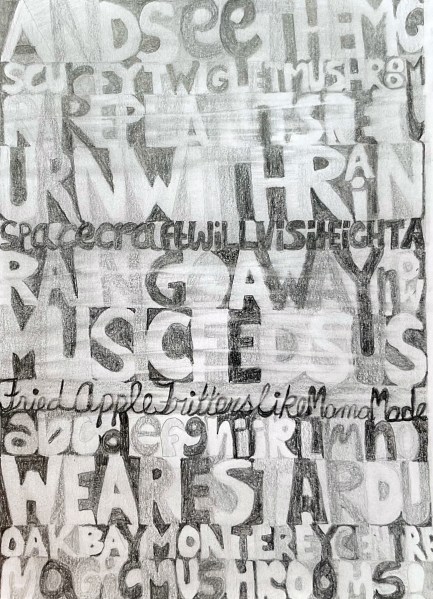 ANDSEETHEMG
SCURFYTWIGLETMUSHROOM
RAREPLANTSREEL
URNWITHRAIN
spacecraftwillvisiteightA
RAINGOAWAYnow
MUSICFEEDSUS
FriedAppleFritterslikeMamaMade
abcdefghijklmno
WEARESTARDU
OAKBAYMONTEREYCENTRE
MAGICMUSHROOMS!